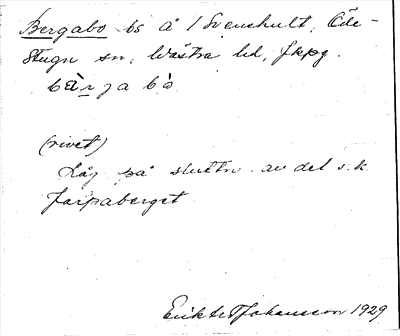 Bergabo bs å 1 Svenshult, Öde-
stugu sn, Västra hd, Jkpg.
bær̲ja bò
(rivet)
Låg på sluttn. av det s.k.
Jarpaberget
Erik A Johansson 1929